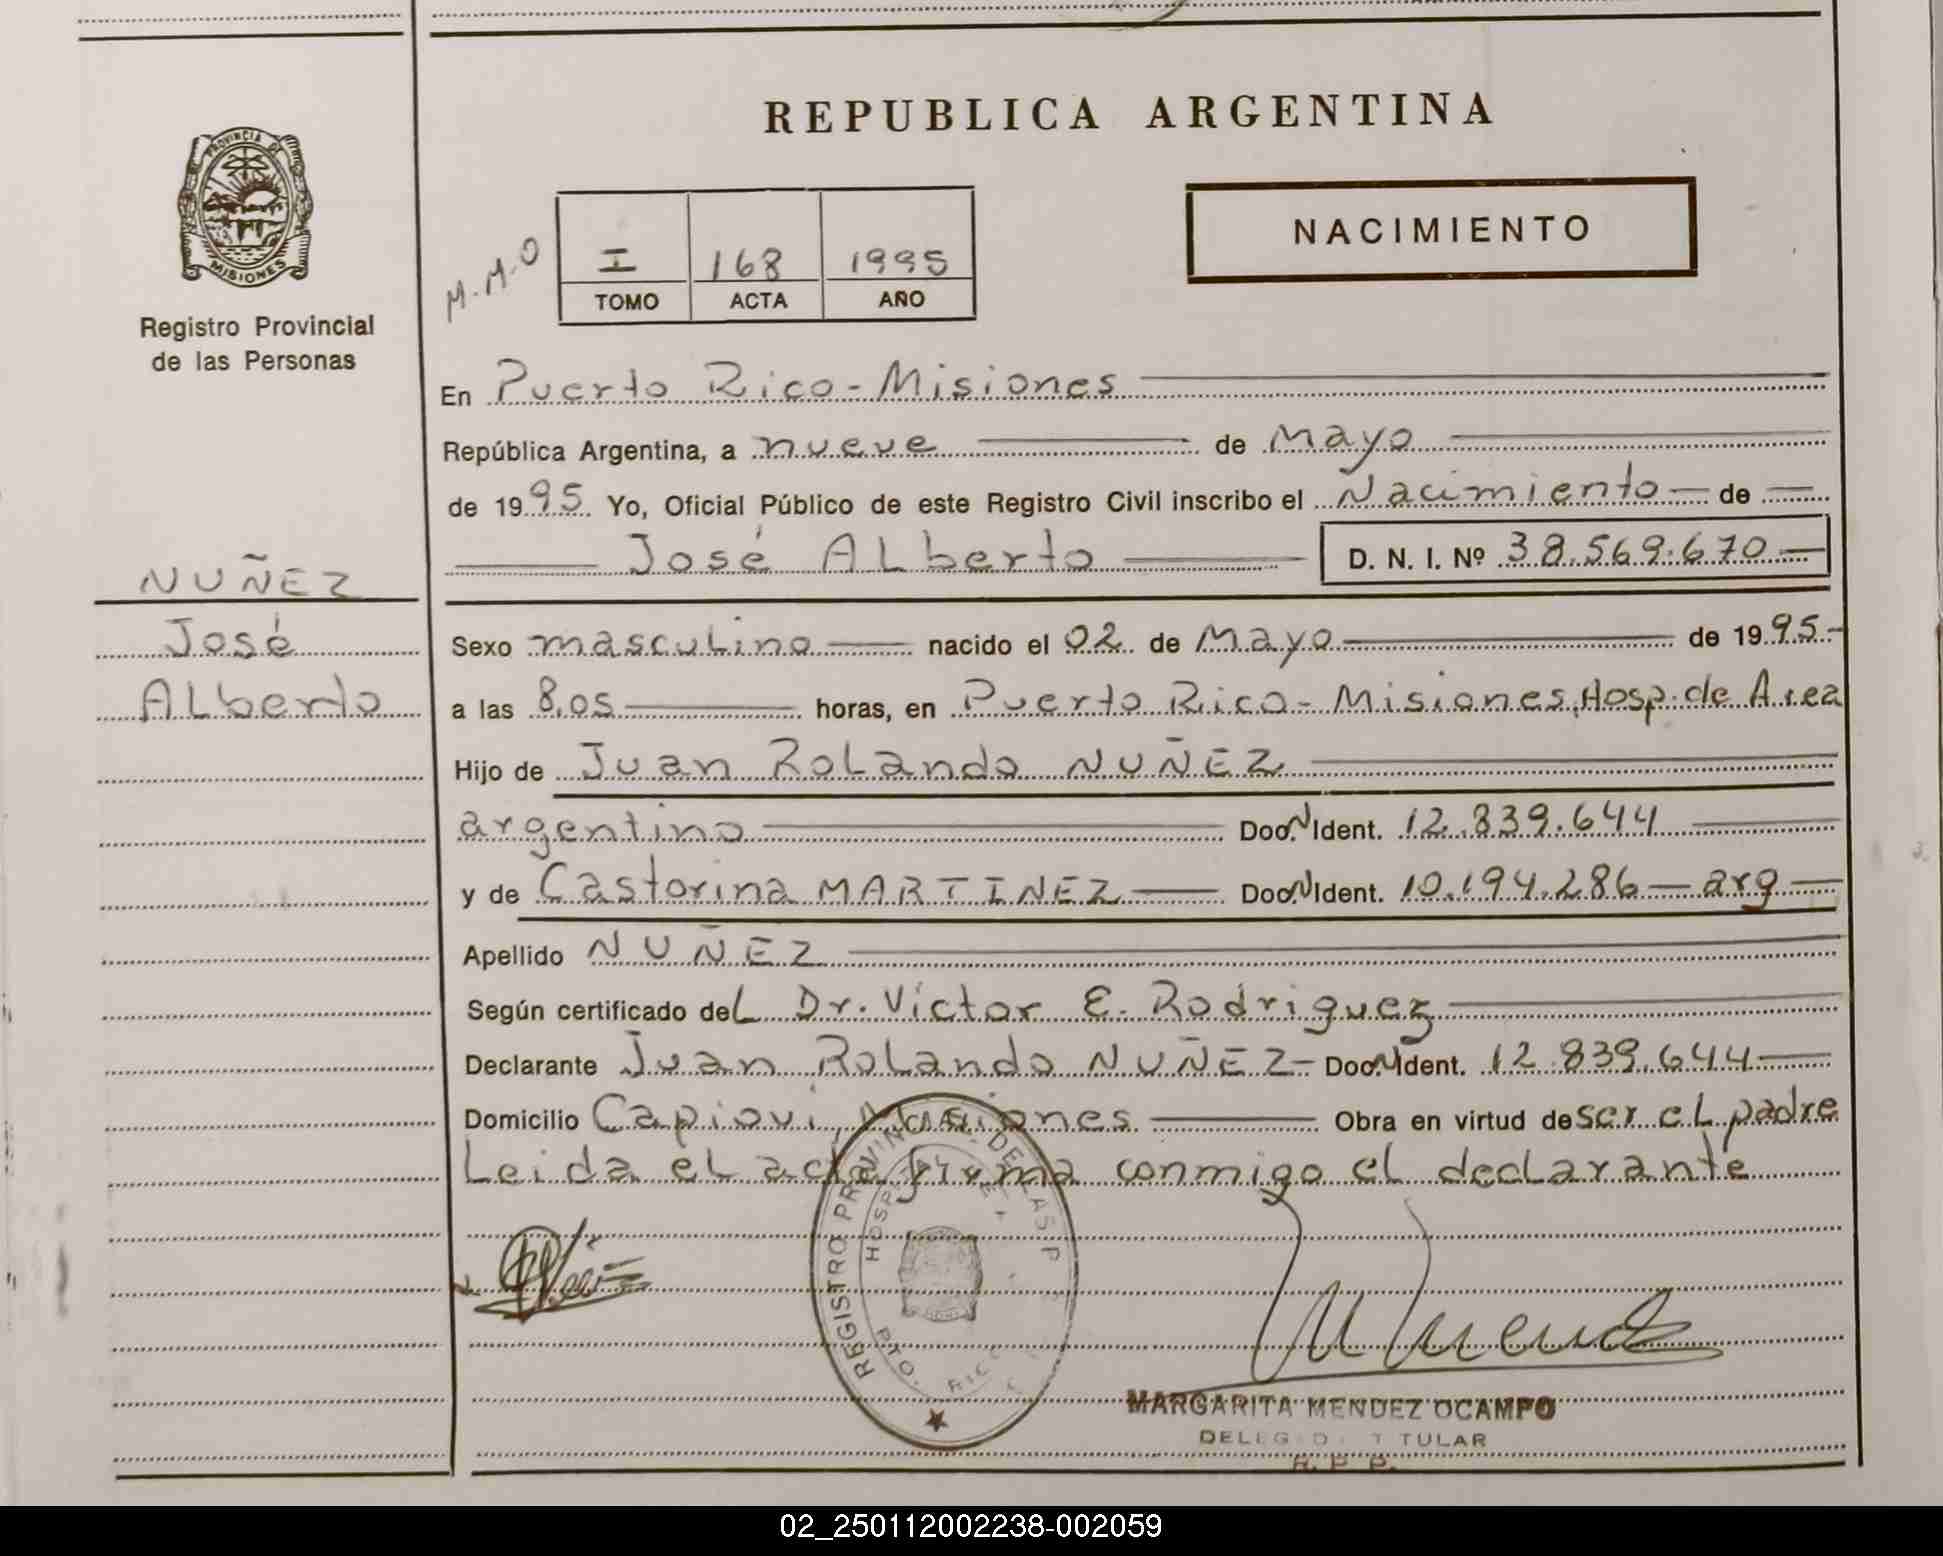 REPUBLICA ARGENTINA
PROVINCIA DE
MISIONES
Registro Provincial
de las Personas
NACIMIENTO
M.M.O
I 168 1995
TOMO ACTA AÑO
En Puerto Rico - Misiones
República Argentina, a nueve de Mayo
de 1995 Yo, Oficial Público de este Registro Civil inscribo el Nacimiento de
José ALberto D. N. I. Nº 38.569.670
NUÑEZ
José
ALberto
Sexo mascuLino nacido el 02 de Mayo de 1995
a las 8,05 horas, en Puerto Rico - Misiones, Hosp. de Area
Hijo de Juan RoLando NUÑEZ
argentino Doc.N Ident. 12.839.644
y de Castorina MARTINEZ Doc.N Ident. 10.194.286 - arg
Apellido NUÑEZ
Según certificado deL Dr. Victor E. Rodriguez
Declarante Juan RoLando NUÑEZ - Doc.N Ident. 12.839.644
Domicilio Capiovi, Misiones Obra en virtud de ser eL padre
Leida eL acta firma conmigo el decLarante
REGISTRO PROVINCIAL DE LAS P
HOSPITAL
PTO. RICO
MARGARITA MENDEZ OCAMPO
DELEGADA TITULAR
R. P. P.
02_250112002238-002059